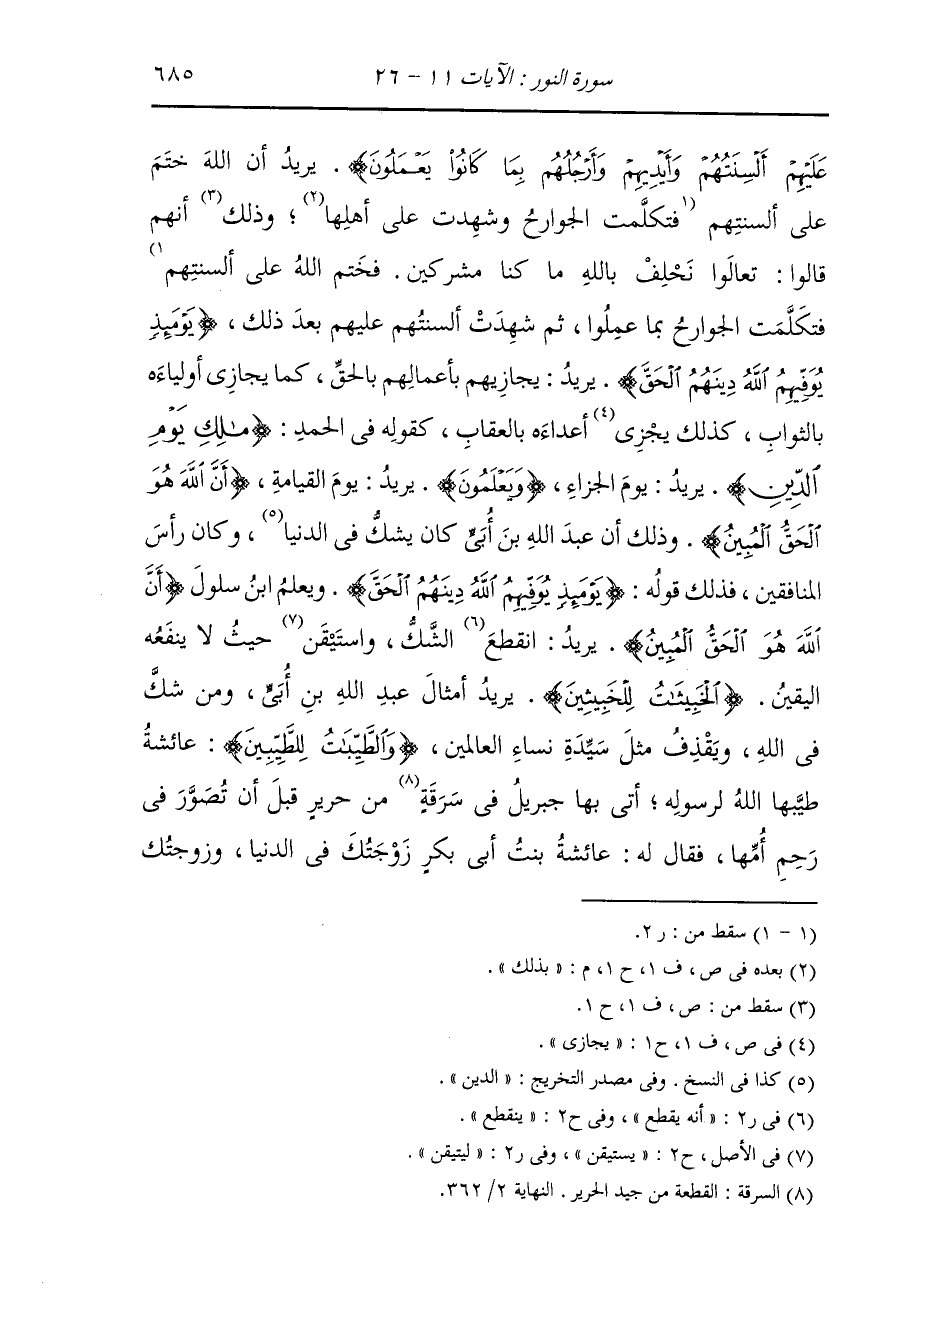 سورة النور : الآيات ١١ - ٢٦ ٦٨٥
عَلَيْهِمْ أَلْسِنَتُهُمْ وَأَيْدِيهِمْ وَأَرْجُلُهُم بِمَا كَانُوا۟ يَعْمَلُونَ﴾ . يريدُ أن اللهَ ختَمَ
على ألسنتِهم (١فتكلَّمت الجوارحُ وشهِدت على أهلِها(٢) ؛ وذلك(٣) أنهم
قالوا : تعالَوا نَحْلِفْ باللهِ ما كنا مشركين . فختم اللهُ على ألسنتِهم١)
فتكَلَّمَت الجوارحُ بما عمِلُوا ، ثم شهِدَتْ ألسنتُهم عليهم بعدَ ذلك ، ﴿يَوْمَئِذٍ
يُوَفِّيهِمُ ٱللَّهُ دِينَهُمُ ٱلْحَقَّ﴾ . يريدُ : يجازِيهم بأعمالِهم بالحقِّ ، كما يجازِى أولياءَه
بالثوابِ ، كذلك يجْزِى(٤) أعداءَه بالعقابِ ، كقولِه فى الحمدِ : ﴿مَـٰلِكِ يَوْمِ
ٱلدِّينِ﴾ . يريدُ : يومَ الجزاءِ ، ﴿وَيَعْلَمُونَ﴾ . يريدُ : يومَ القيامةِ ، ﴿أَنَّ ٱللَّهَ هُوَ
ٱلْحَقُّ ٱلْمُبِينُ﴾ . وذلك أن عبدَ اللهِ بنَ أُبَىٍّ كان يشكُّ فى الدنيا(٥) ، وكان رأسَ
المنافقين ، فذلك قولُه : ﴿يَوْمَئِذٍ يُوَفِّيهِمُ ٱللَّهُ دِينَهُمُ ٱلْحَقَّ﴾ . ويعلمُ ابنُ سلولَ ﴿أَنَّ
ٱللَّهَ هُوَ ٱلْحَقُّ ٱلْمُبِينُ﴾ . يريدُ : انقطعَ(٦) الشَّكُّ ، واستَيْقَن(٧) حيثُ لا ينفَعُه
اليقينُ . ﴿ٱلْخَبِيثَـٰتُ لِلْخَبِيثِينَ﴾ . يريدُ أمثالَ عبدِ اللهِ بنِ أُبَىٍّ ، ومن شكَّ
فى اللهِ ، ويَقْذِفُ مثلَ سَيِّدَةِ نساءِ العالمين ، ﴿وَٱلطَّيِّبَـٰتُ لِلطَّيِّبِينَ﴾ : عائشةُ
طيَّبها اللهُ لرسولِه ؛ أتى بها جبريلُ فى سَرَقَةٍ(٨) من حريرٍ قبلَ أن تُصَوَّرَ فى
رَحِمِ أُمِّها ، فقال له : عائشةُ بنتُ أبى بكرٍ زَوْجَتُكَ فى الدنيا ، وزوجتُك
(١ - ١) سقط من : ر ٢.
(٢) بعده فى ص ، ف ١، ح ١، م : « بذلك » .
(٣) سقط من : ص ، ف ١، ح ١.
(٤) فى ص ، ف ١، ح١ : « يجازى » .
(٥) كذا فى النسخ . وفى مصدر التخريج : « الدين » .
(٦) فى ر٢ : « أنه يقطع » ، وفى ح٢ : « ينقطع » .
(٧) فى الأصل ، ح٢ : « يستيقن » ، وفى ر٢ : « ليتيقن » .
(٨) السرقة : القطعة من جيد الحرير . النهاية ٢/ ٣٦٢.